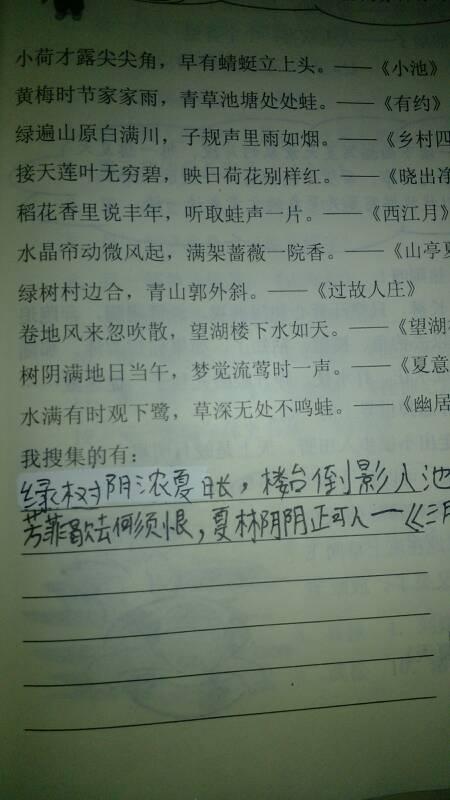 小荷才露尖尖角，早有蜻蜓立上头。——《小池》
黄梅时节家家雨，青草池塘处处蛙。——《有约》
绿遍山原白满川，子规声里雨如烟。——《乡村四
接天莲叶无穷碧，映日荷花别样红。——《晓出净
稻花香里说丰年，听取蛙声一片。——《西江月》
水晶帘动微风起，满架蔷薇一院香。——《山亭夏
绿树村边合，青山郭外斜。——《过故人庄》
卷地风来忽吹散，望湖楼下水如天。——《望湖
树阴满地日当午，梦觉流莺时一声。——《夏意
水满有时观下鹭，草深无处不鸣蛙。——《幽居
我搜集的有：
绿树阴浓夏日长，楼台倒影入池
芳菲歇去何须恨，夏林阴阴正可人—《三月